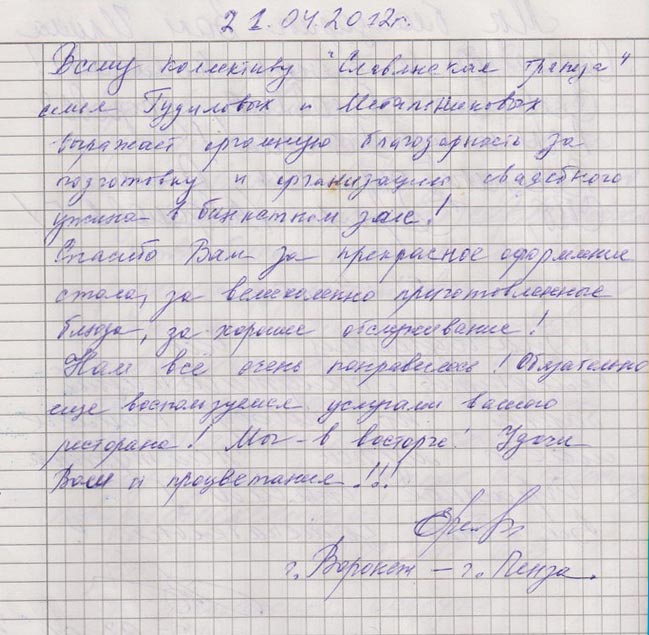 21.04.2012г.
Всему коллективу "Славянская трапеза"
семья Гудиловых и
выражает огромную благодарность за
подготовку и организацию свадебного
ужина в банкетном зале!
Спасибо Вам за прекрасное оформление
стола, за великолепно приготовленные
блюда, за хорошее обслуживание!
Нам всё очень понравилось! Обязательно
еще воспользуемся услугами вашего
ресторана! Мы - в восторге! Удачи
Вам и процветания!!!
г. Воронеж - г. Пенза.